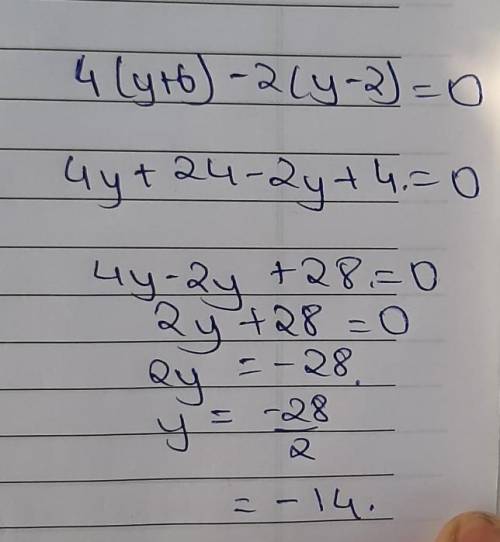 4(y+6) - 2(y-2) = 0
4y + 24 - 2y + 4. = 0
4y - 2y + 28. = 0
2y + 28 = 0
2y = -28.
y = -28/2
= -14.